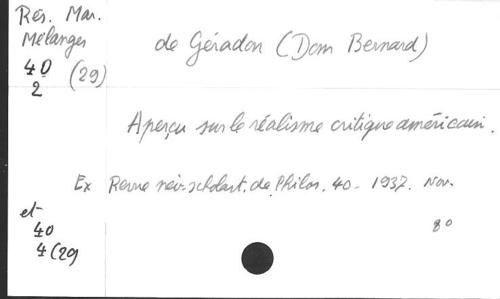 Rés. Mar.
Mélanges
40 (29)
2
de Géradon (Dom Bernard)
Aperçu sur le réalisme critique américain.
Ex Revue néo-scholast. de Philos. 40 - 1937. Nov.
8°
et
40
4 (29